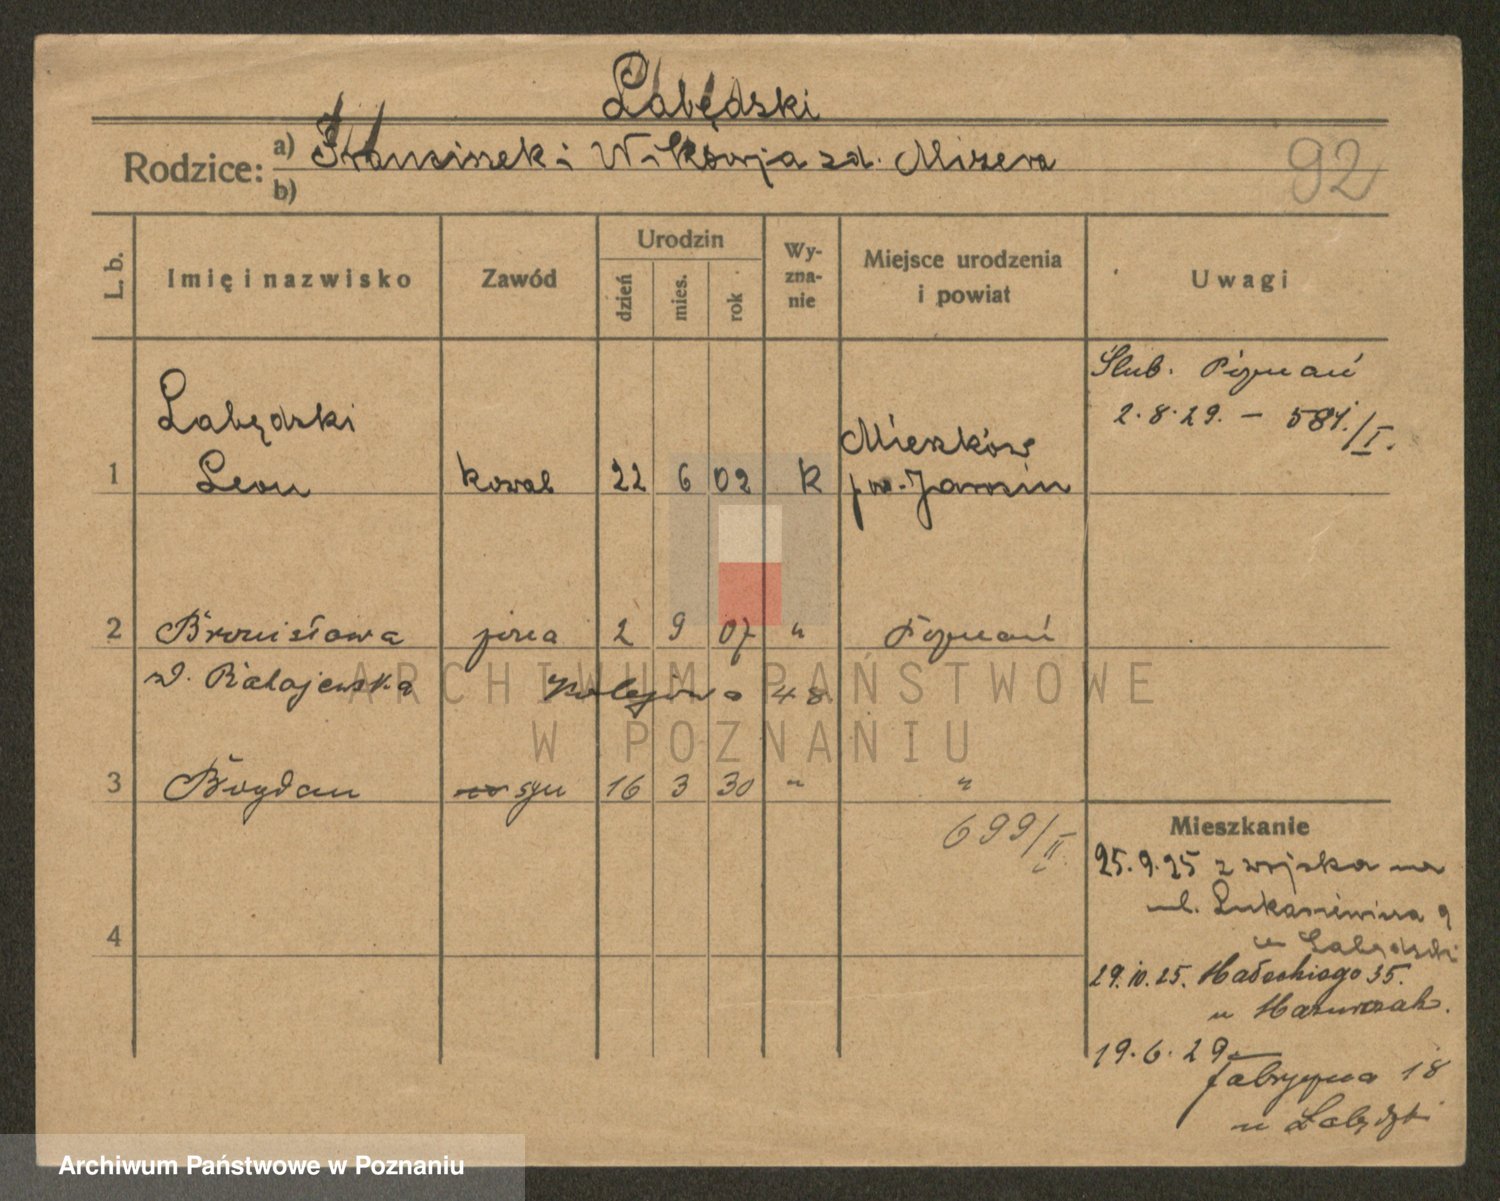 Łabędzki
Rodzice: a) Franciszek i Wiktorja zd. Mizera
b)
92
L. b. Imię i nazwisko Zawód Urodzin dzień mies. rok Wy-zna-nie Miejsce urodzenia i powiat Uwagi
Ślub. Poznań
2.8.29. – 581./I.
Łabędzki
1 Leon kowal 22 6 02 k Mieszków pow. Jarocin
2 Bronisława żona 2 9 07 " Poznań
zd. Ratajewska Kolejowa 48
3 Bogdan syn 16 3 30 " "
699/II.
4
Mieszkanie
25.9.25 z wojska na
ul. Łukasiewicza 9
u Łabędzki
29.10.25. Małeckiego 35.
u Mazurczak.
19.6.29
Fabryczna 18
u Łabędzki
ARCHIWUM PAŃSTWOWE
W POZNANIU
Archiwum Państwowe w Poznaniu